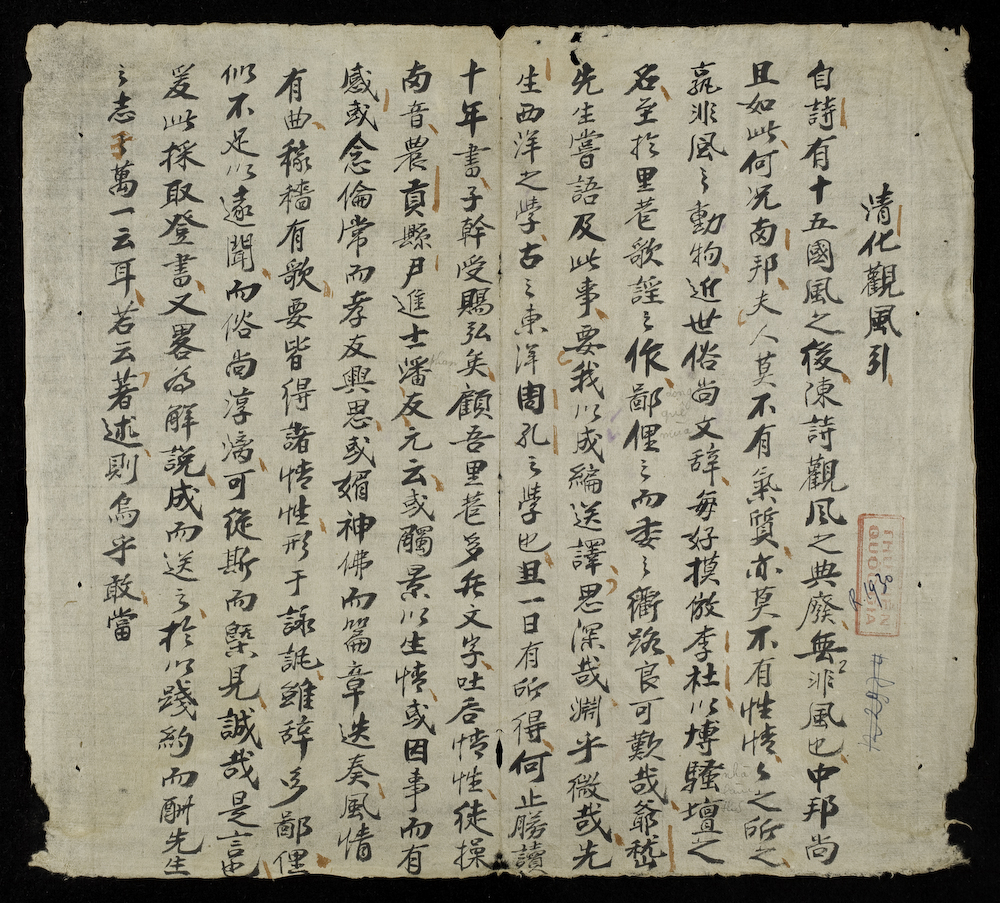 清化觀風引
自詩有十五國風之後陳詩觀風之典廢無非風也中邦尚
且如此何况南邦夫人莫不有氣質亦莫不有性情々之所之
孰非風之動物近世俗尚文辞每好摸倣李杜以博騷壇之
名至於里巷歌謡之作鄙俚之而委之衢路良可歎哉爺嵇
先生嘗語及此事要我以成編送譯思深哉淵乎微哉先
生西洋之學古之東洋周孔之學也且一日有所得何止勝讀
十年書子幹受賜弘矣顧吾里巷多㐲文字吐吞情性徒操
南音農貢縣尹進士潘友元云或觸景以生情或因事而有
感或念倫常而孝友興思或媚神佛而篇章迭奏風情
有曲稼穡有歌要皆得諸情性形于詠謊雖辞多鄙俚
似不足以遠聞而俗尚淳漓可從斯而槩見誠哉是言也
爰此採取登書又畧為解説成而送之於以踐約而酬先生
之志于萬一云耳若云著述則烏乎敢當
R.1930